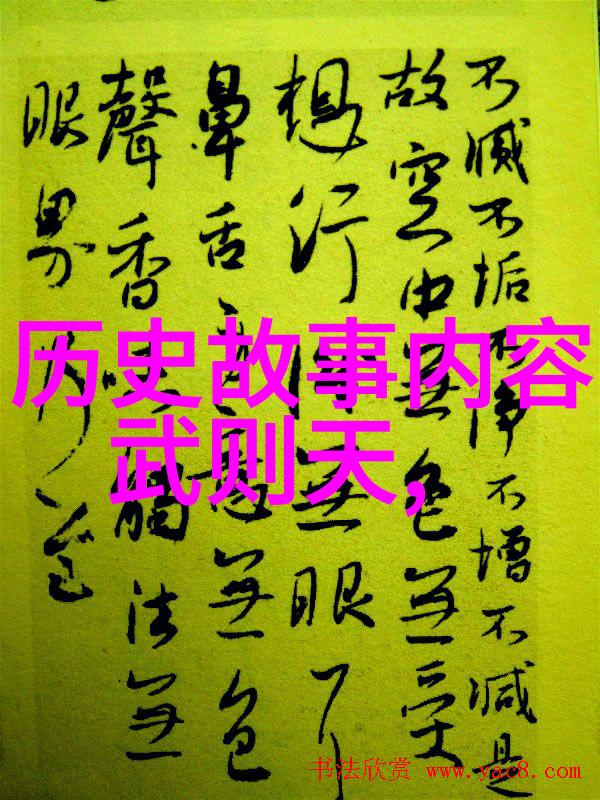 不滅不垢不淨不增不減是
故空中無色無受
想行無眼耳
鼻舌意無色
聲香味觸法無
眼界乃至
历史故事内容
武则天,
书法欣赏 www.yac8.com